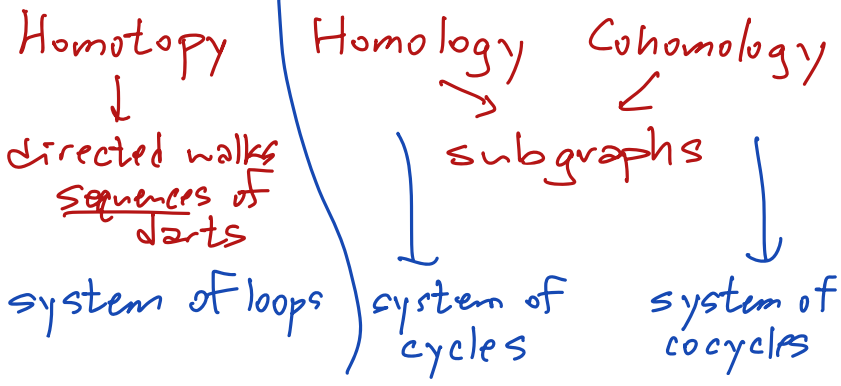 Homotopy
directed walks
sequences of
darts
system of loops
Homology
Cohomology
subgraphs
system of
cycles
system of
cocycles